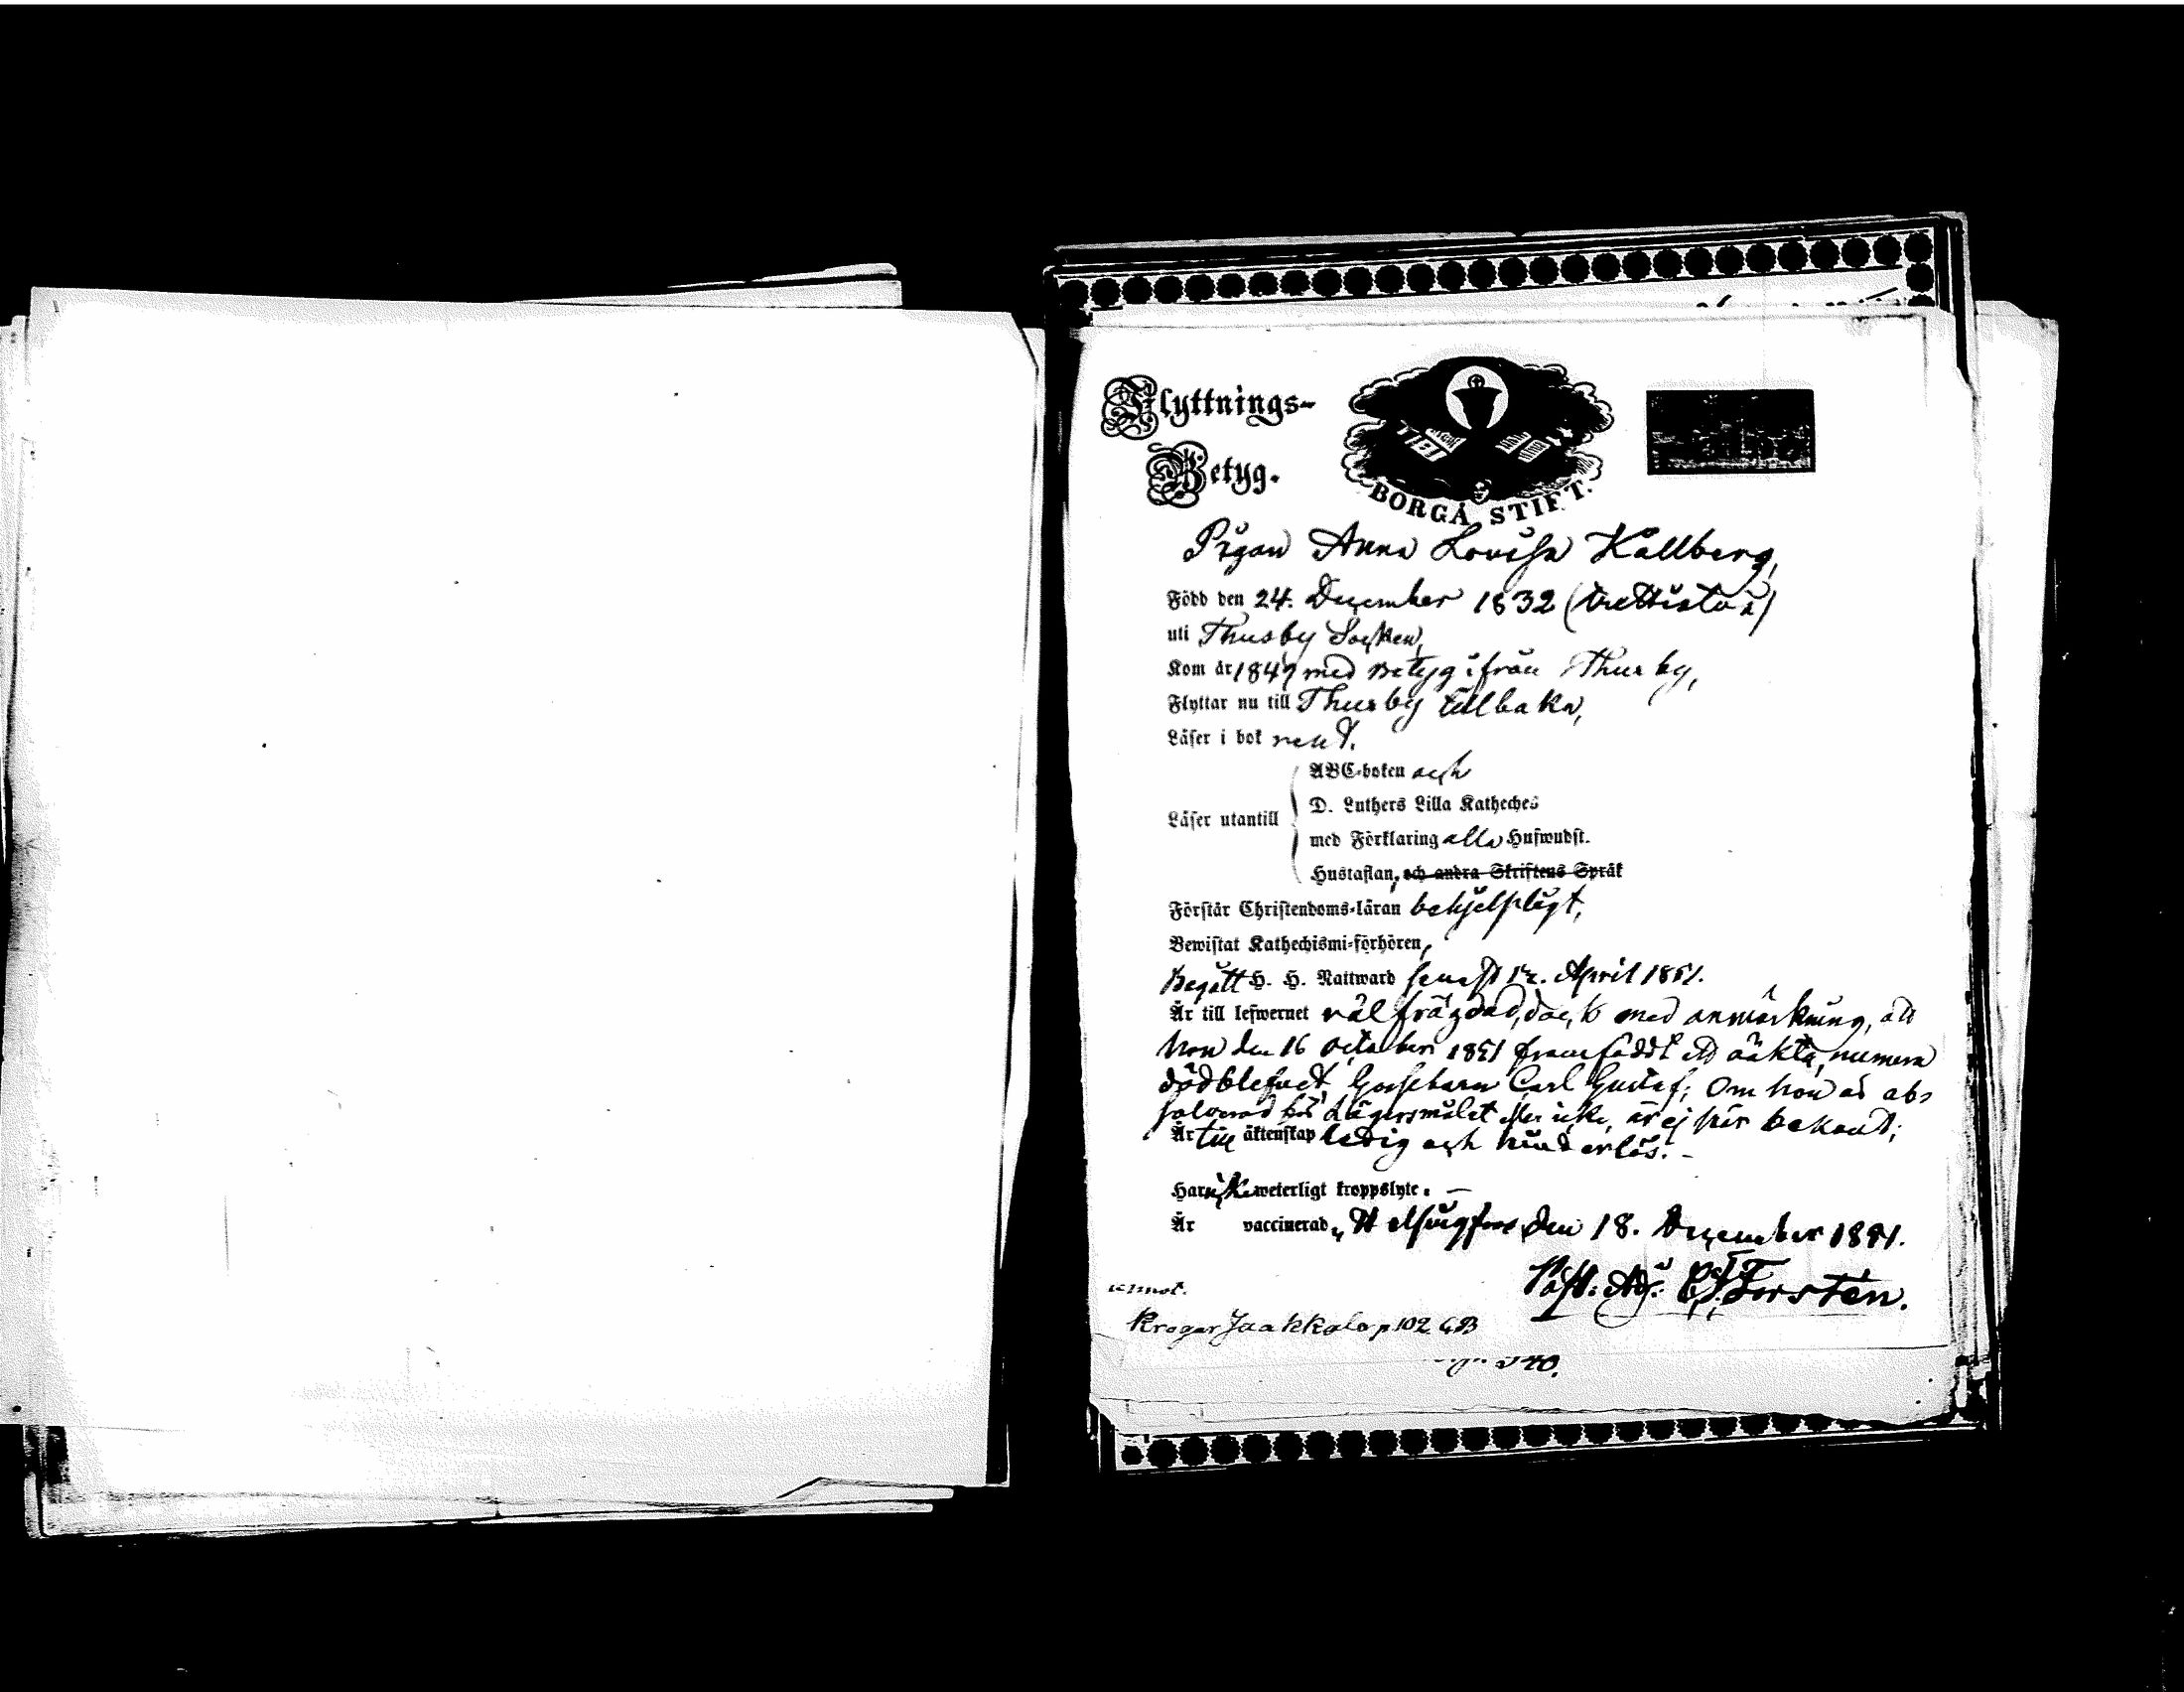 Flyttnings-
Betyg.
BORGÅ STIFT.
Pigan Anna Lovisa Källberg,
Född den 24. December 1832 (trettiotvå)
uti Thusby Socken,
Kom år 1849 med Betyg ifrån Thusby,
Flyttar nu till Thusby tillbaka,
Läser i bok rent.
ABC-boken och
Läser utantill
D. Luthers Lilla Katheches
med Förklaring alla Hufwudst.
Hustaflan, och andra Skriftens Språk
Förstår Christendoms-läran behjelpligt,
Bewistat Kathechismi-förhören,
Begått H. H. Nattward senast April 1851.
Är till lefwernet välfrägdad, dock med anmärkning, att
hon den 16 October 1851 framfödt ett oäkta, numera
dödblefvet Gossebarn Carl Gustaf; Om hon är ab-
solverad för Lägersmålet eller icke, är ej här bekant;
Är till äktenskap ledig och hinderlös. -
Har icke weterligt kroppslyte. —
Är vaccinerad, Helsingfors den 18. December 1851.
Past. Adj. Forstén.
Kroger Jaakkola p 102 GB
340.